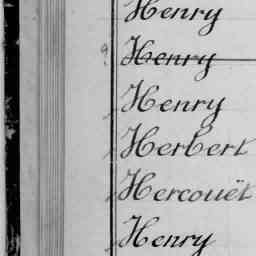 Henry
Henry
Henry
Herbert
Hercouët
Henry